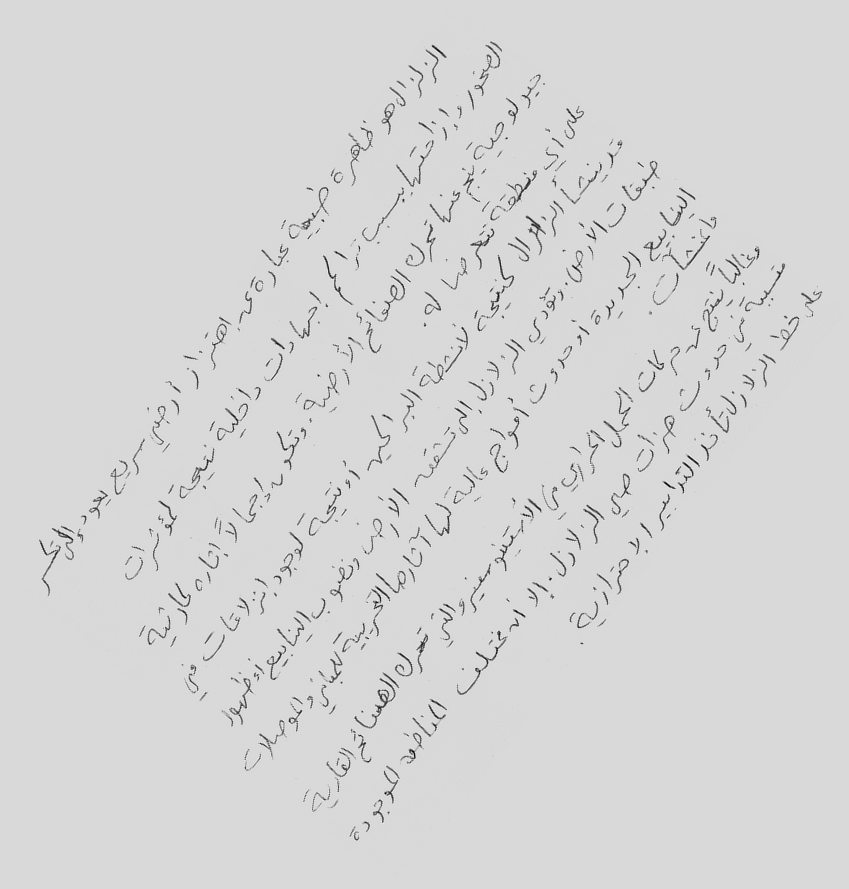 الزلزال هو ظاهرة طبيعة عبارة عن اهتزاز أرضي سريع يعود إلى تكسر
الصخور وإزاحتها بسبب تراكم إجهادات داخلية نتيجة لمؤثرات
جيولوجية ينجم عنها تحرك الصفائح الأرضية. وتكون إجمالاً آثاره كارثية
على أي منطقة تتعرض له.
قد ينشأ الزلزال كنتيجة لأنشطة البراكين أو نتيجة لوجود انزلاقات في
طبقات الأرض. وتؤدي الزلازل إلى تشقق الأرض ونضوب الينابيع أو ظهور
الينابيع الجديدة أو حدوث أمواج عالية لها آثارها التخريبية للمباني والموصلات
والمنشآت.
وغالباً ينتج عن حركات الحمل الحراري في الأستينوسفير والتي تحرك الصفائح القارية
متسببة في حدوث هزات هي الزلازل. إلا أن مختلف المناطق الموجودة
على خط الزلازل تأخذ التدابير الاحترازية.